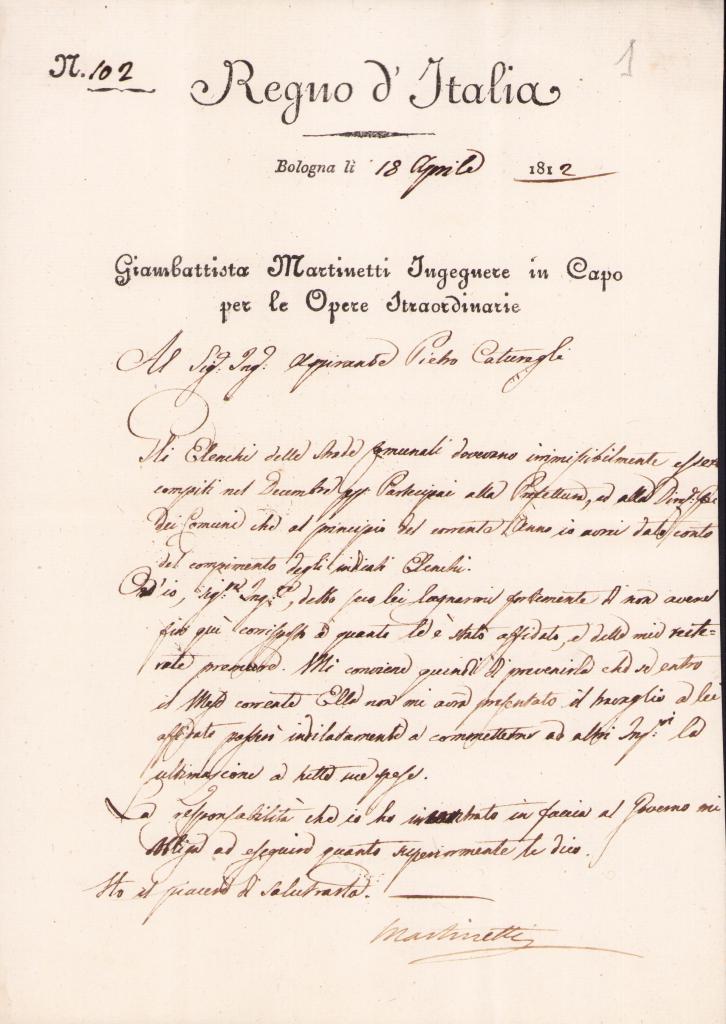 N. 102
1
Regno d'Italia
Bologna li 18 Aprile 1812
Giambattista Martinetti Ingegnere in Capo
per le Opere Straordinarie
Al Sig. Ing. Aspirante Pietro Caturegli
Gli Elenchi delle Strade Comunali dovevano immissibilmente essere
compiti nel Decembre Partecipai alla Prefettura, ed alla
dei Comuni che al principio del corrente Anno io avrei dato conto
del compimento degli indicati Elenchi.
Ond'io, Sig.re Ing.re, debbo seco lei lagnarmi fortemente di non avere
fin quì corrisposto a quanto le è stato affidato, e delle mie reite-
rate premure. Mi conviene quindi di prevenirla che se entro
il Mese corrente Ella non mi avrà presentato il travaglio a lei
affidato passerò indilatamente a commetterne ad altri Ing.ri la
ultimazione a tutte sue spese.
La responsabilità che io ho incontrato in faccia al Governo mi
obbliga ad eseguire quanto superiormente le dico.
Ho il piacere di salutarla.
Martinetti